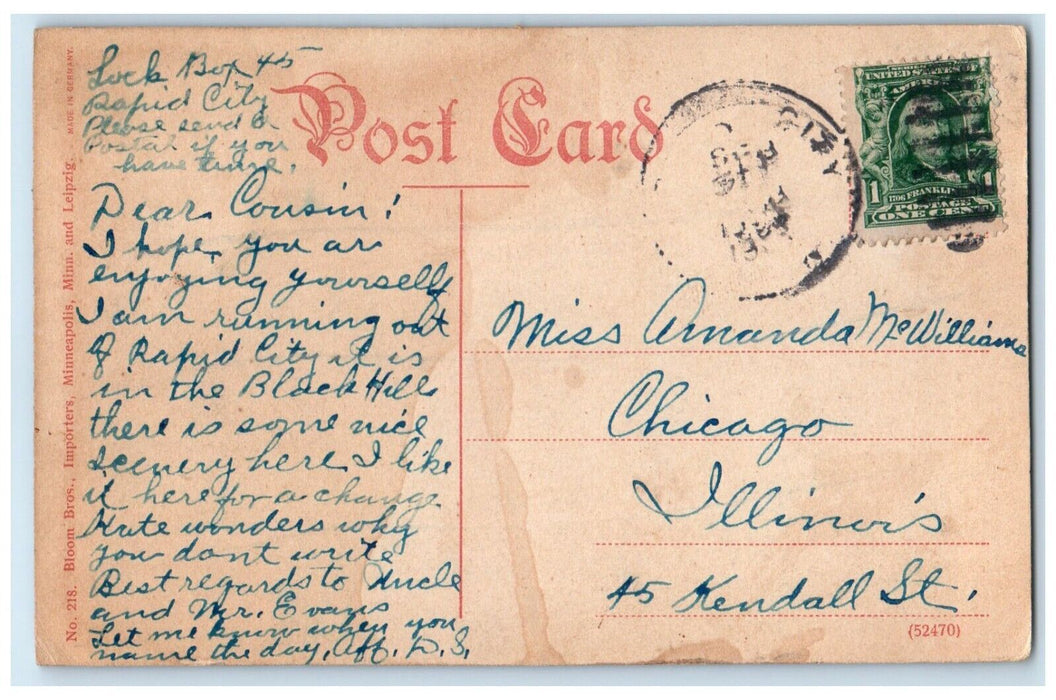 Lock Box 45
Rapid City
Please send a
Postal if you
have time.
Post Card
Dear Cousin!
I hope you are
enjoying yourself
I am running out
of Rapid City it is
in the Black Hills
there is some nice
scenery here I like
it here for a change
Kate wonders why
you dont write
Best regards to Uncle
and Mr. Evans
Let me know when you
name the day, Aff. D.S.
No. 218. Bloom Bros., Importers, Minneapolis, Minn. and Leipzig. MADE IN GERMANY.
CITY
SERIES
UNITED STATES OF
AMERICA
1706 FRANKLIN
1
POSTAGE
ONE CENT
Miss Amanda McWilliams
Chicago
Illinois
45 Kendall St.
(52470)